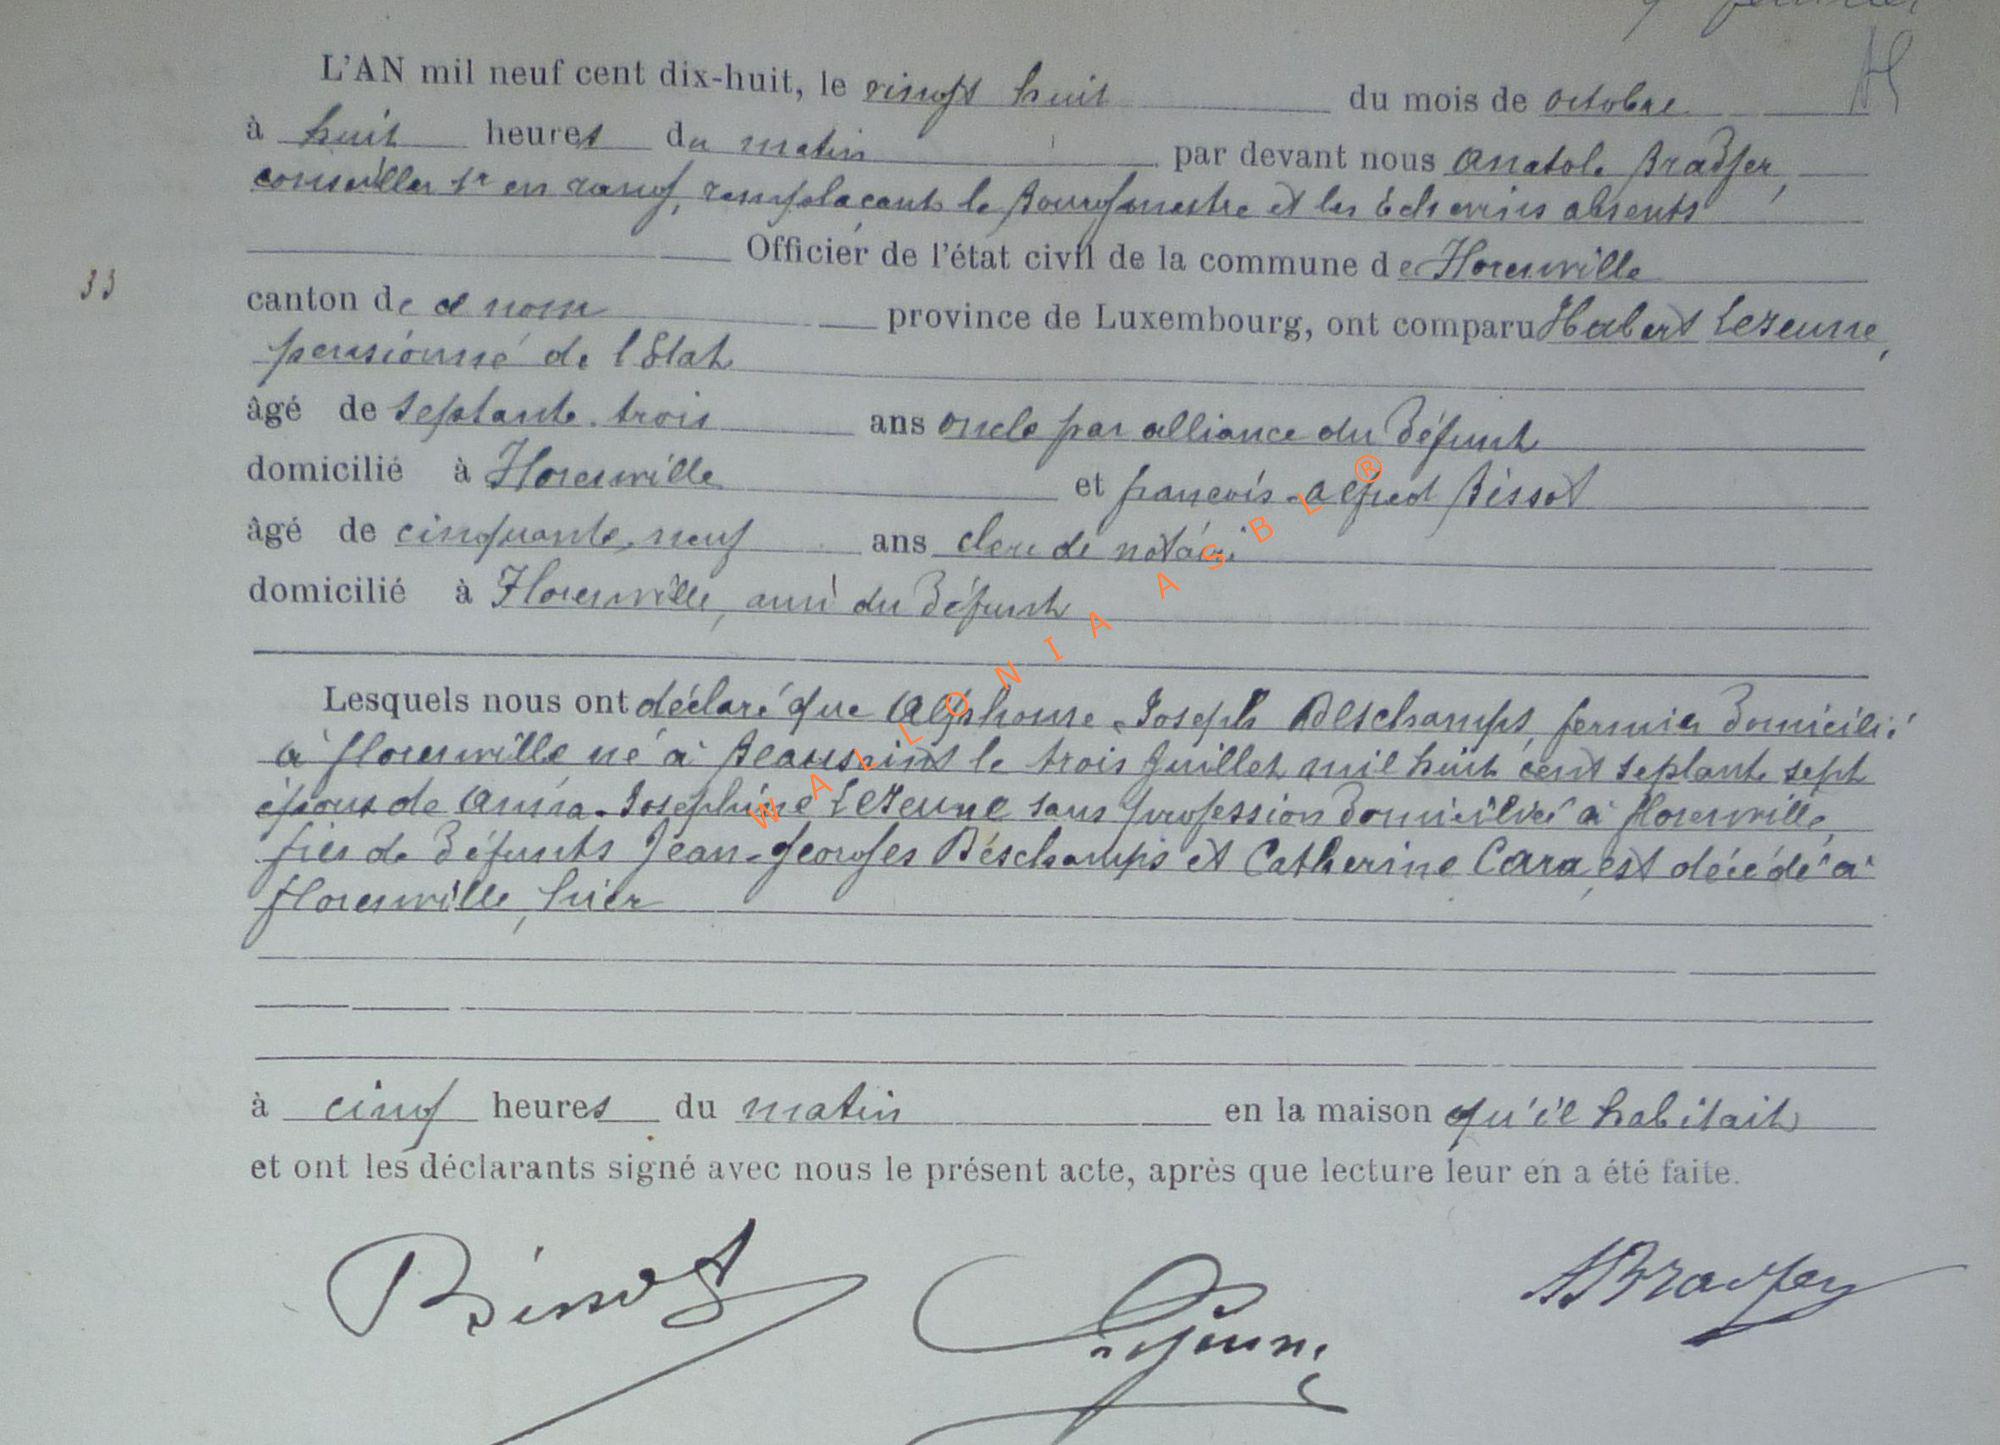 février
L'AN mil neuf cent dix-huit, le vingt huit du mois de octobre
à huit heures du matin par devant nous Anatole Bradfer,
conseiller 1r en rang, remplaçant le Bourgmestre et les Echevins absents
Officier de l'état civil de la commune de Florenville
33
canton de ce nom province de Luxembourg, ont comparu Hubert Lejeune,
pensionné de l'Etat
âgé de septante-trois ans oncle par alliance du défunt
domicilié à Florenville et françois-Alfred Bissot
âgé de cinquante-neuf ans clerc de notaire
domicilié à Florenville, ami du défunt
Lesquels nous ont déclaré que Alphonse-Joseph Déschamps, fermier domicilié
à florenville né à Beausaint le trois Juillet mil huit cent septante sept
époux de Anna-Josephine Lejeune sans profession domiciliée à florenville,
fils de défunts Jean-Georges Déschamps et Catherine Cara, est décédé à
florenville, hier
à cinq heures du matin en la maison qu'il habitait
et ont les déclarants signé avec nous le présent acte, après que lecture leur en a été faite.
Bissot Lejeune ABradfer
WALLONIA ASBL ®